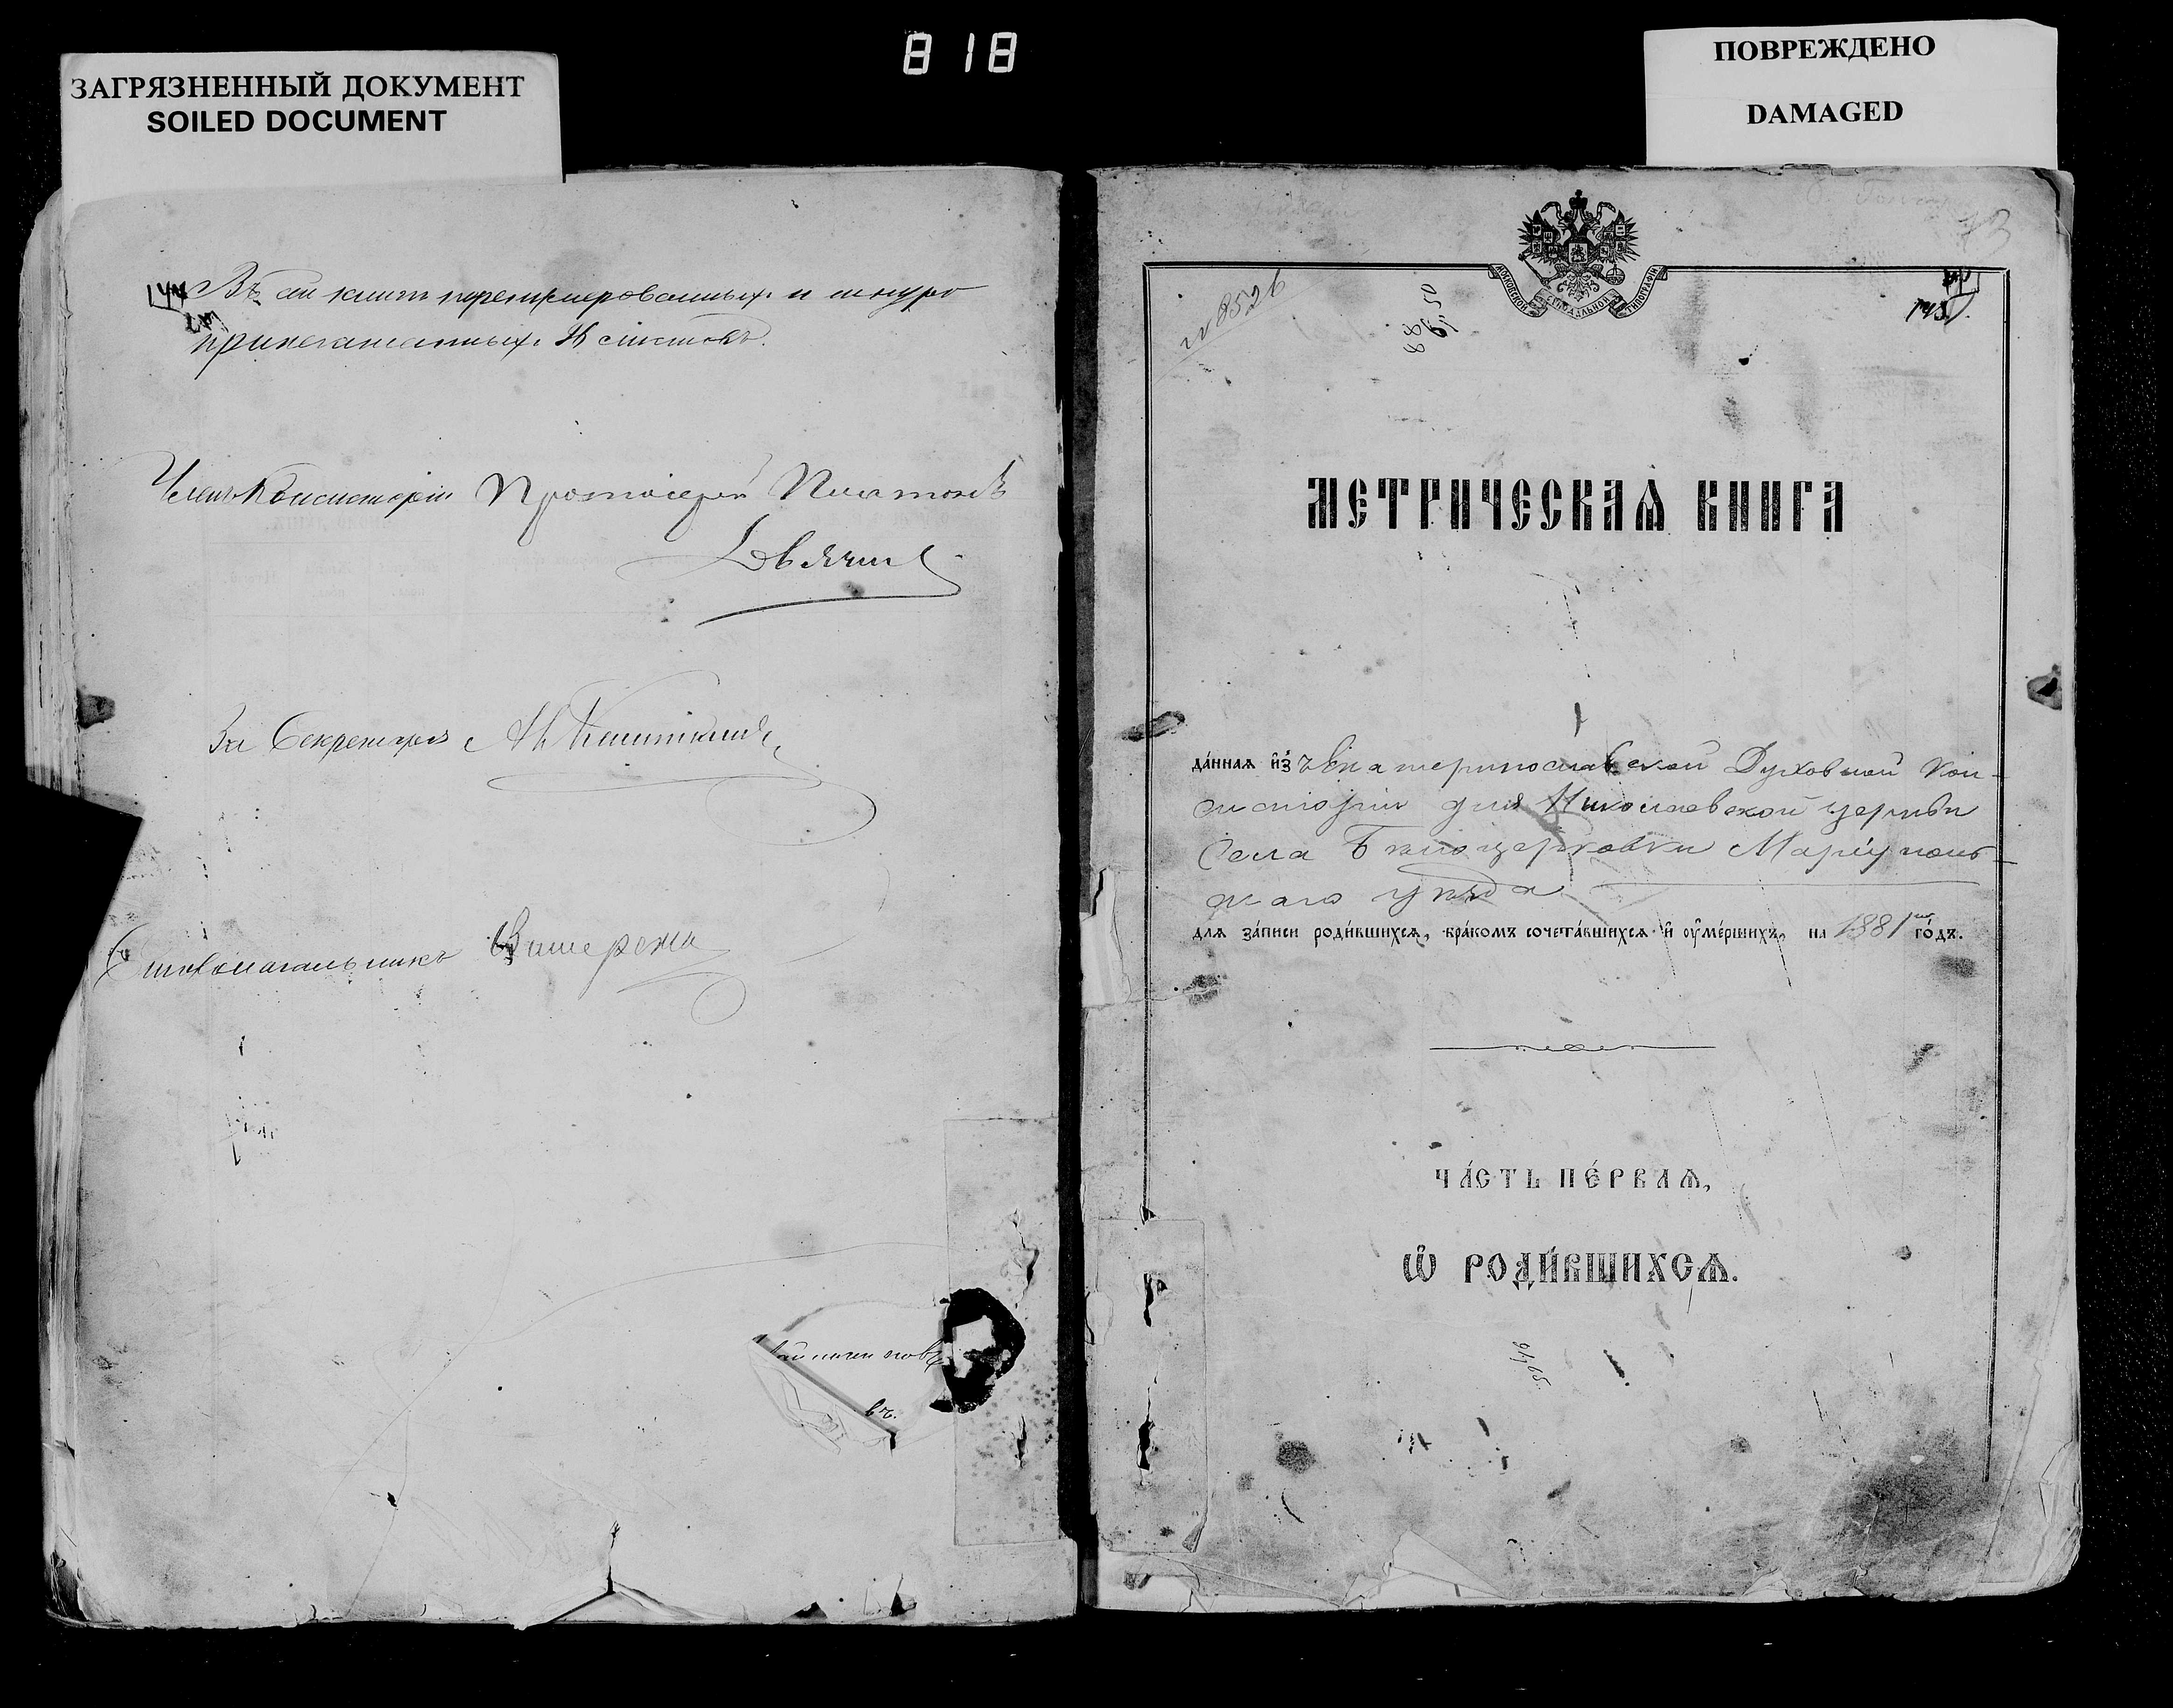 818
ЗАГРЯЗНЕННЫЙ ДОКУМЕНТ
SOILED DOCUMENT
ПОВРЕЖДЕНО
DAMAGED
144
Въ сей книге перенумерованныхъ и шнуро
припечатанныхъ листовъ.
Членъ Консисторіи Протоіерей Платонъ
За Секретаря
Столоначальникъ
въ.
МОСКОВСКОЙ СѴНОДАЛЬНОЙ ТИПОГРАФІИ
№ 8526
МЕТРИЧЕСКАѦ КНИГА
да́ннаѧ и҆зъ Екатеринославской Духовной Кон-
систоріи для Николаевской церкви
села Бѣлоцерковки Маріуполь-
скаго уѣзда
длѧ за́писи роди́вшихсѧ, бра́комъ сочета́вшихсѧ и҆ ᲂу҆ме́ршихъ, на 1881 го́дъ.
ЧА́СТЬ ПЕ́РВАѦ,
Ѽ РОДИ́ВШИХСѦ.